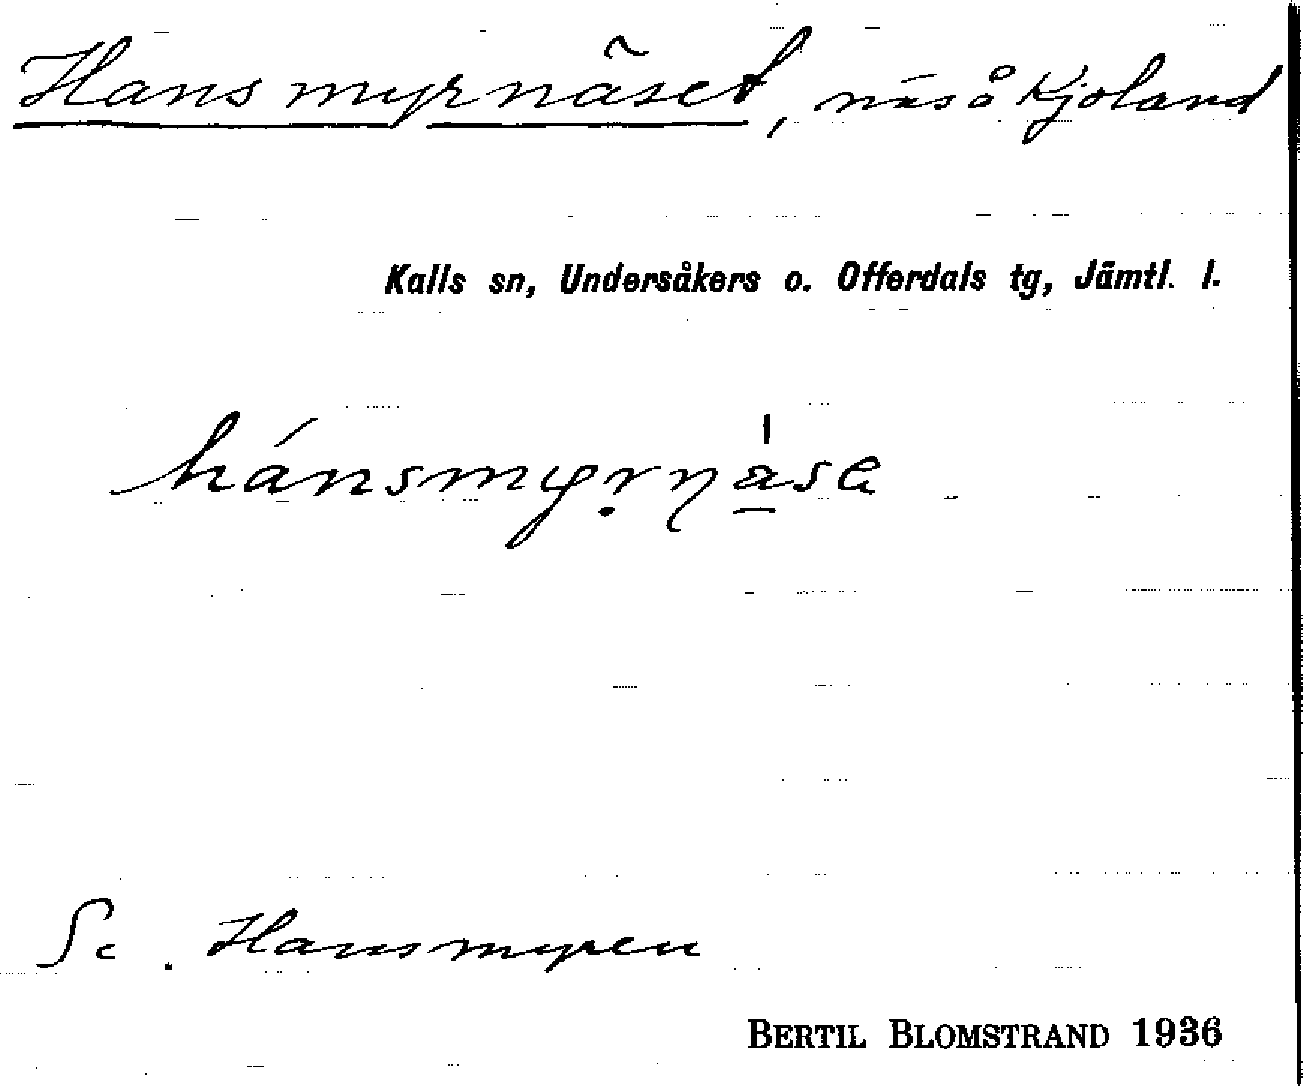 Hansmyrnäset, näs å Kjoland
Kalls sn, Undersåkers o. Offerdals tg, Jämtl. l.
hánsmyṛṇa̲̍sa
Se. Hansmyren
BERTIL BLOMSTRAND 1936